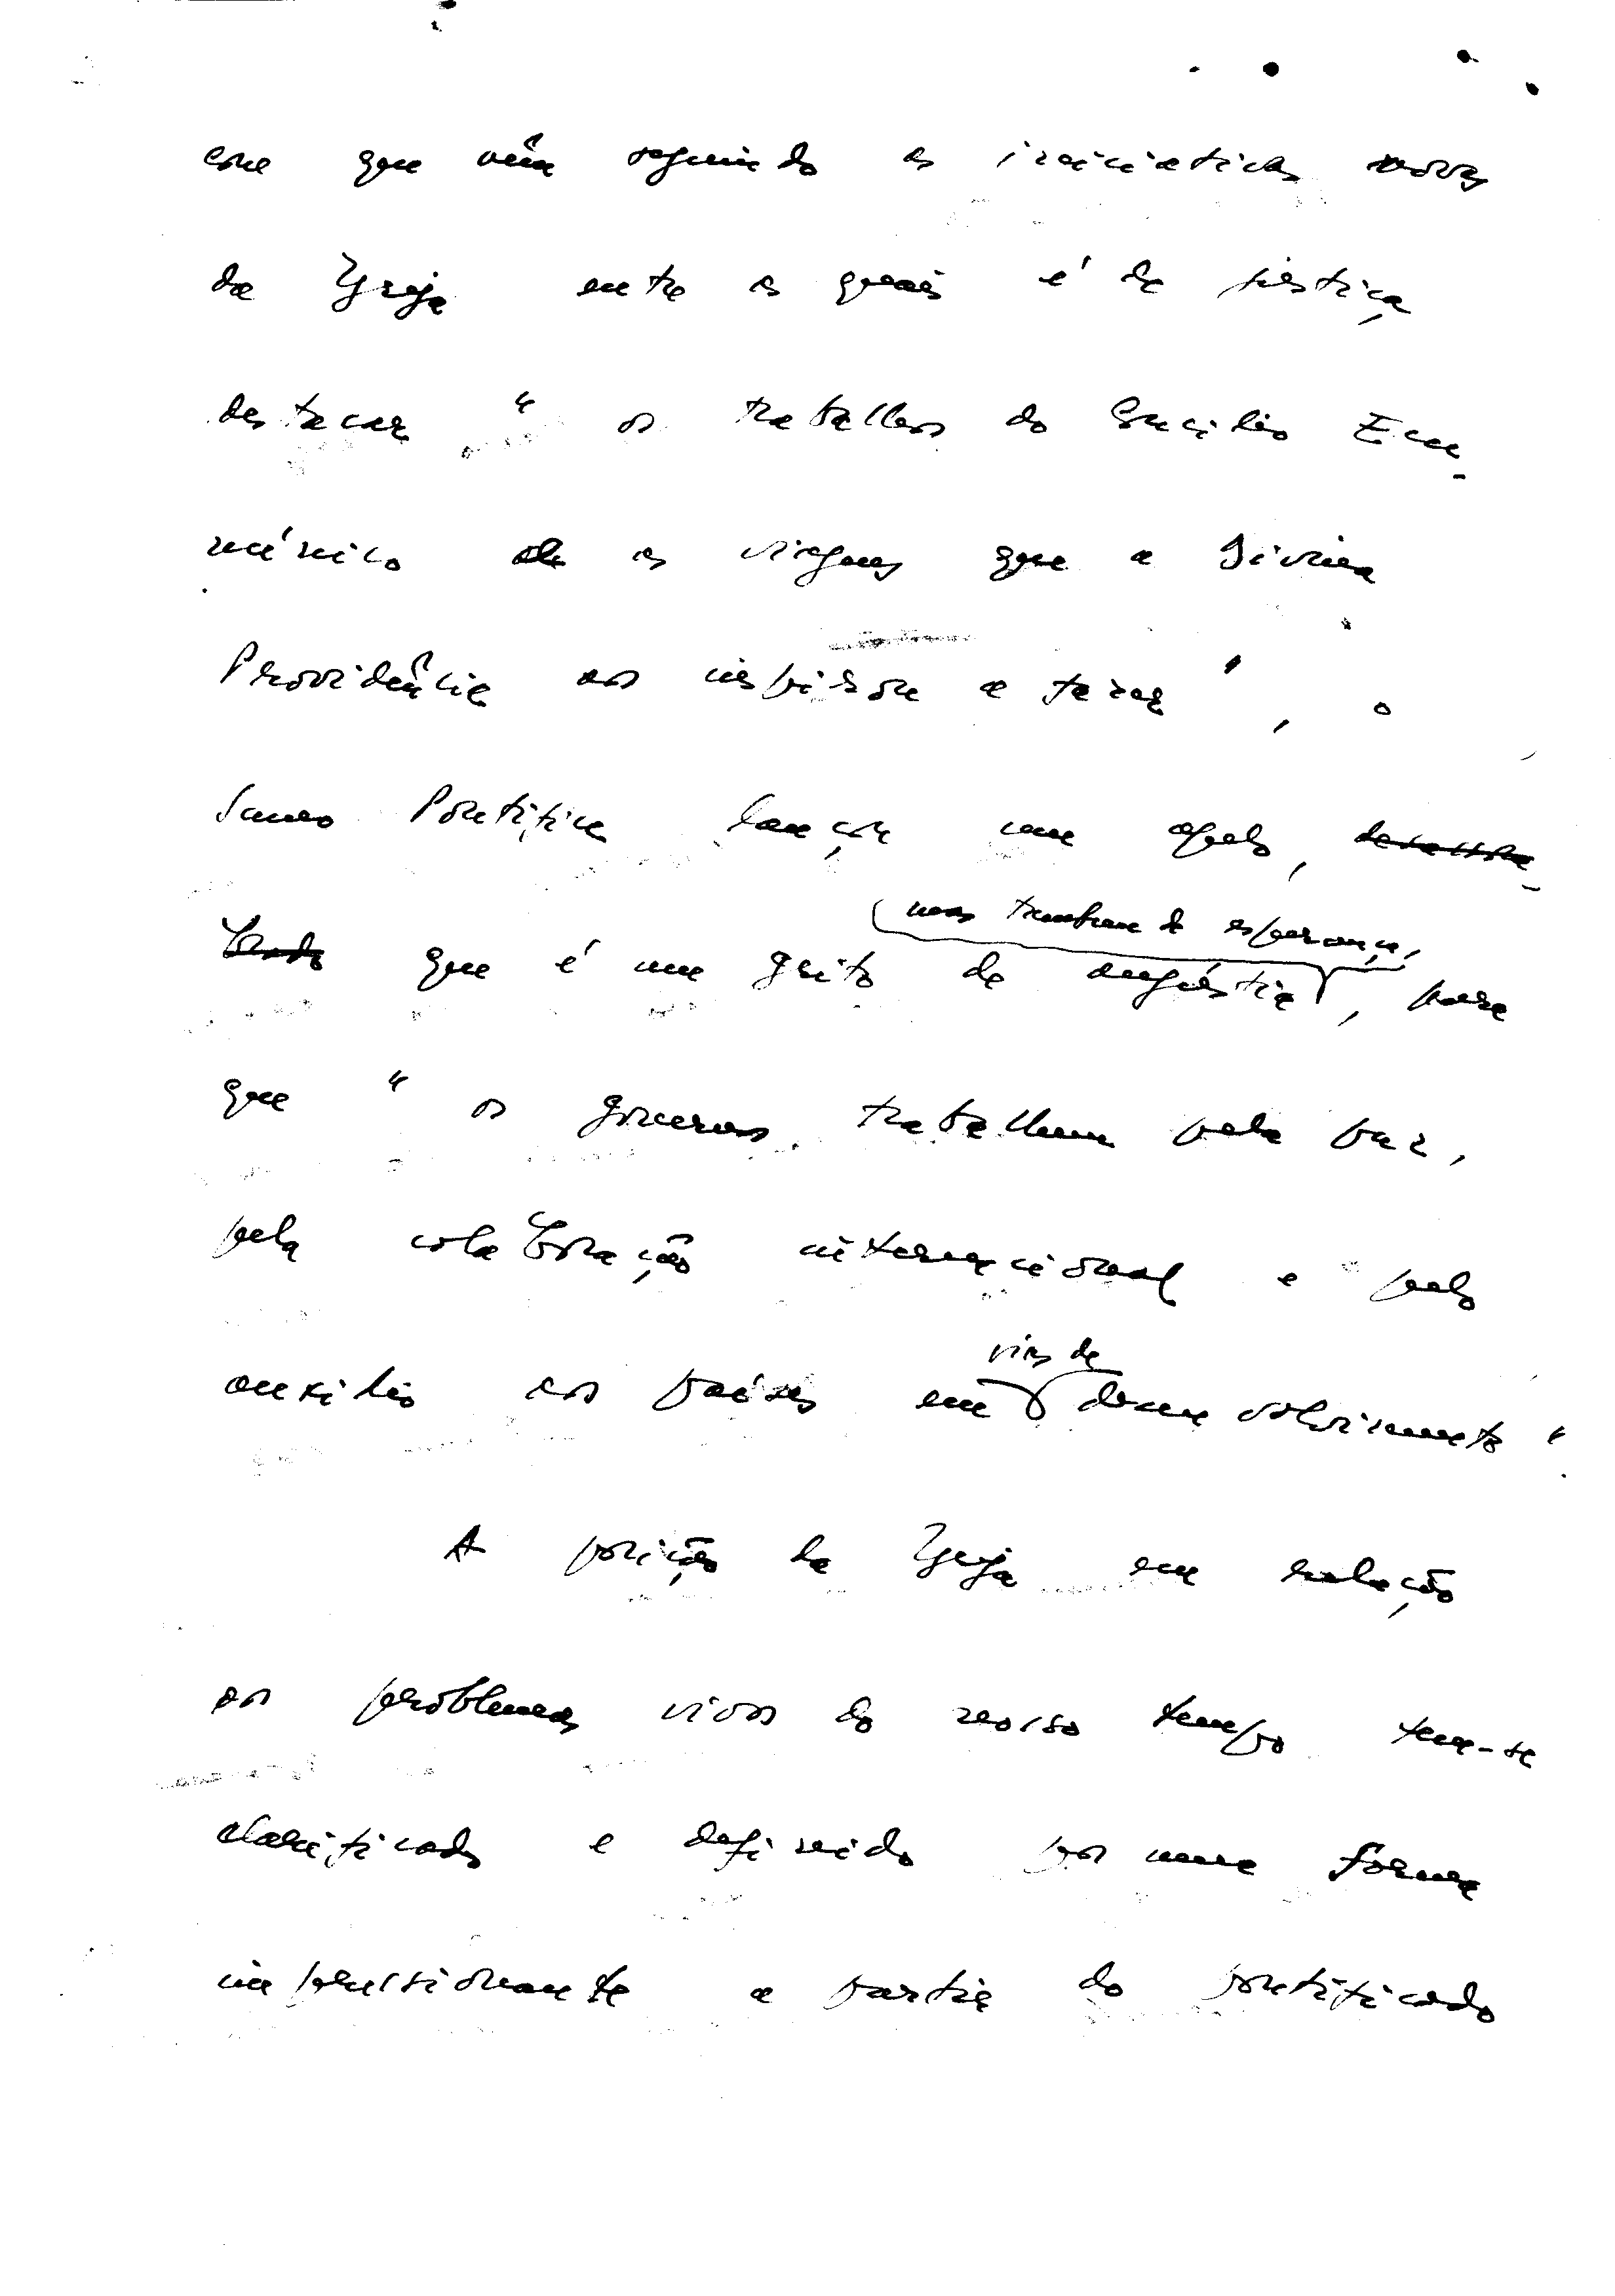 com que vêm seguindo as iniciativas novas
da Igreja entre as quais é de justiça
destacar " os trabalhos do Concílio Ecu-
ménico e as viagens que a Divina
Providência nos inspirou a fazer ", o
Sumo Pontífice lançou um apelo,
mas também de esperança,
que é um grito de angústia, para
que " os governos trabalhem pela paz,
pela colaboração internacional e pelo
vias de
auxílio aos países em desenvolvimento "
A posição da Igreja em relação
aos problemas vivos do nosso tempo tem-se
clarificado e definido por uma forma
impressionante a partir do pontificado